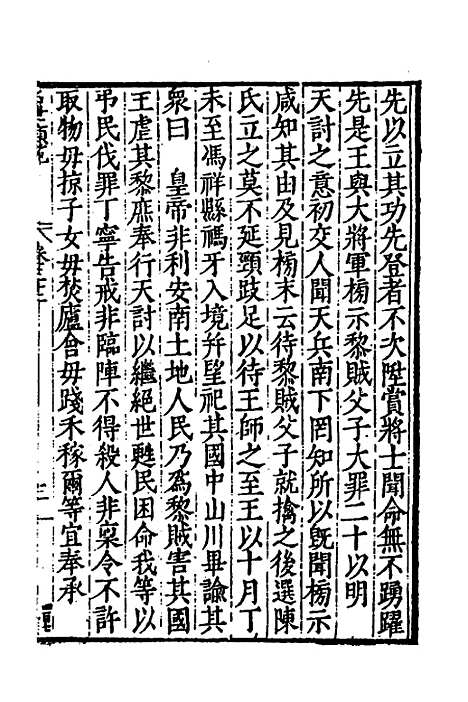 先以立其功先登者不次陞賞將士聞命無不踴躍
先是王與大將軍榜示黎賊父子大罪二十以明
天討之意初交人聞天兵南下罔知所以旣聞榜示
咸知其由及見榜末云待黎賊父子就擒之後選陳
氏立之莫不延頸跂足以待王師之至王以十月丁
未至馮祥縣禡牙入境幷望祀其國中山川畢諭其
衆曰　皇帝非利安南土地人民乃爲黎賊害其國
王虐其黎庶奉行天討以繼絕世甦民困命我等以
弔民伐罪丁寧告戒非臨陣不得殺人非稟令不許
取物毋掠子女毋焚廬舍毋踐禾稼爾等宜奉承